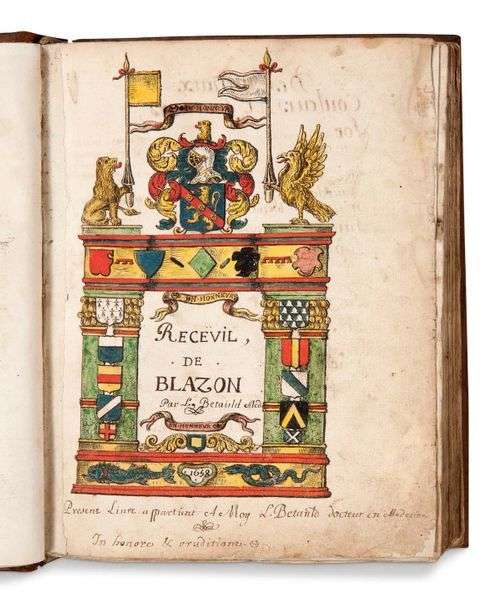 EN·HONNEVR
RECEÜIL,
·DE·
BLAZON
Par L. Betauld Med
EN·HONNEVR
1658
Present Liure appartient A Moy L. Betauld docteur en Medecine
In honore & eruditione